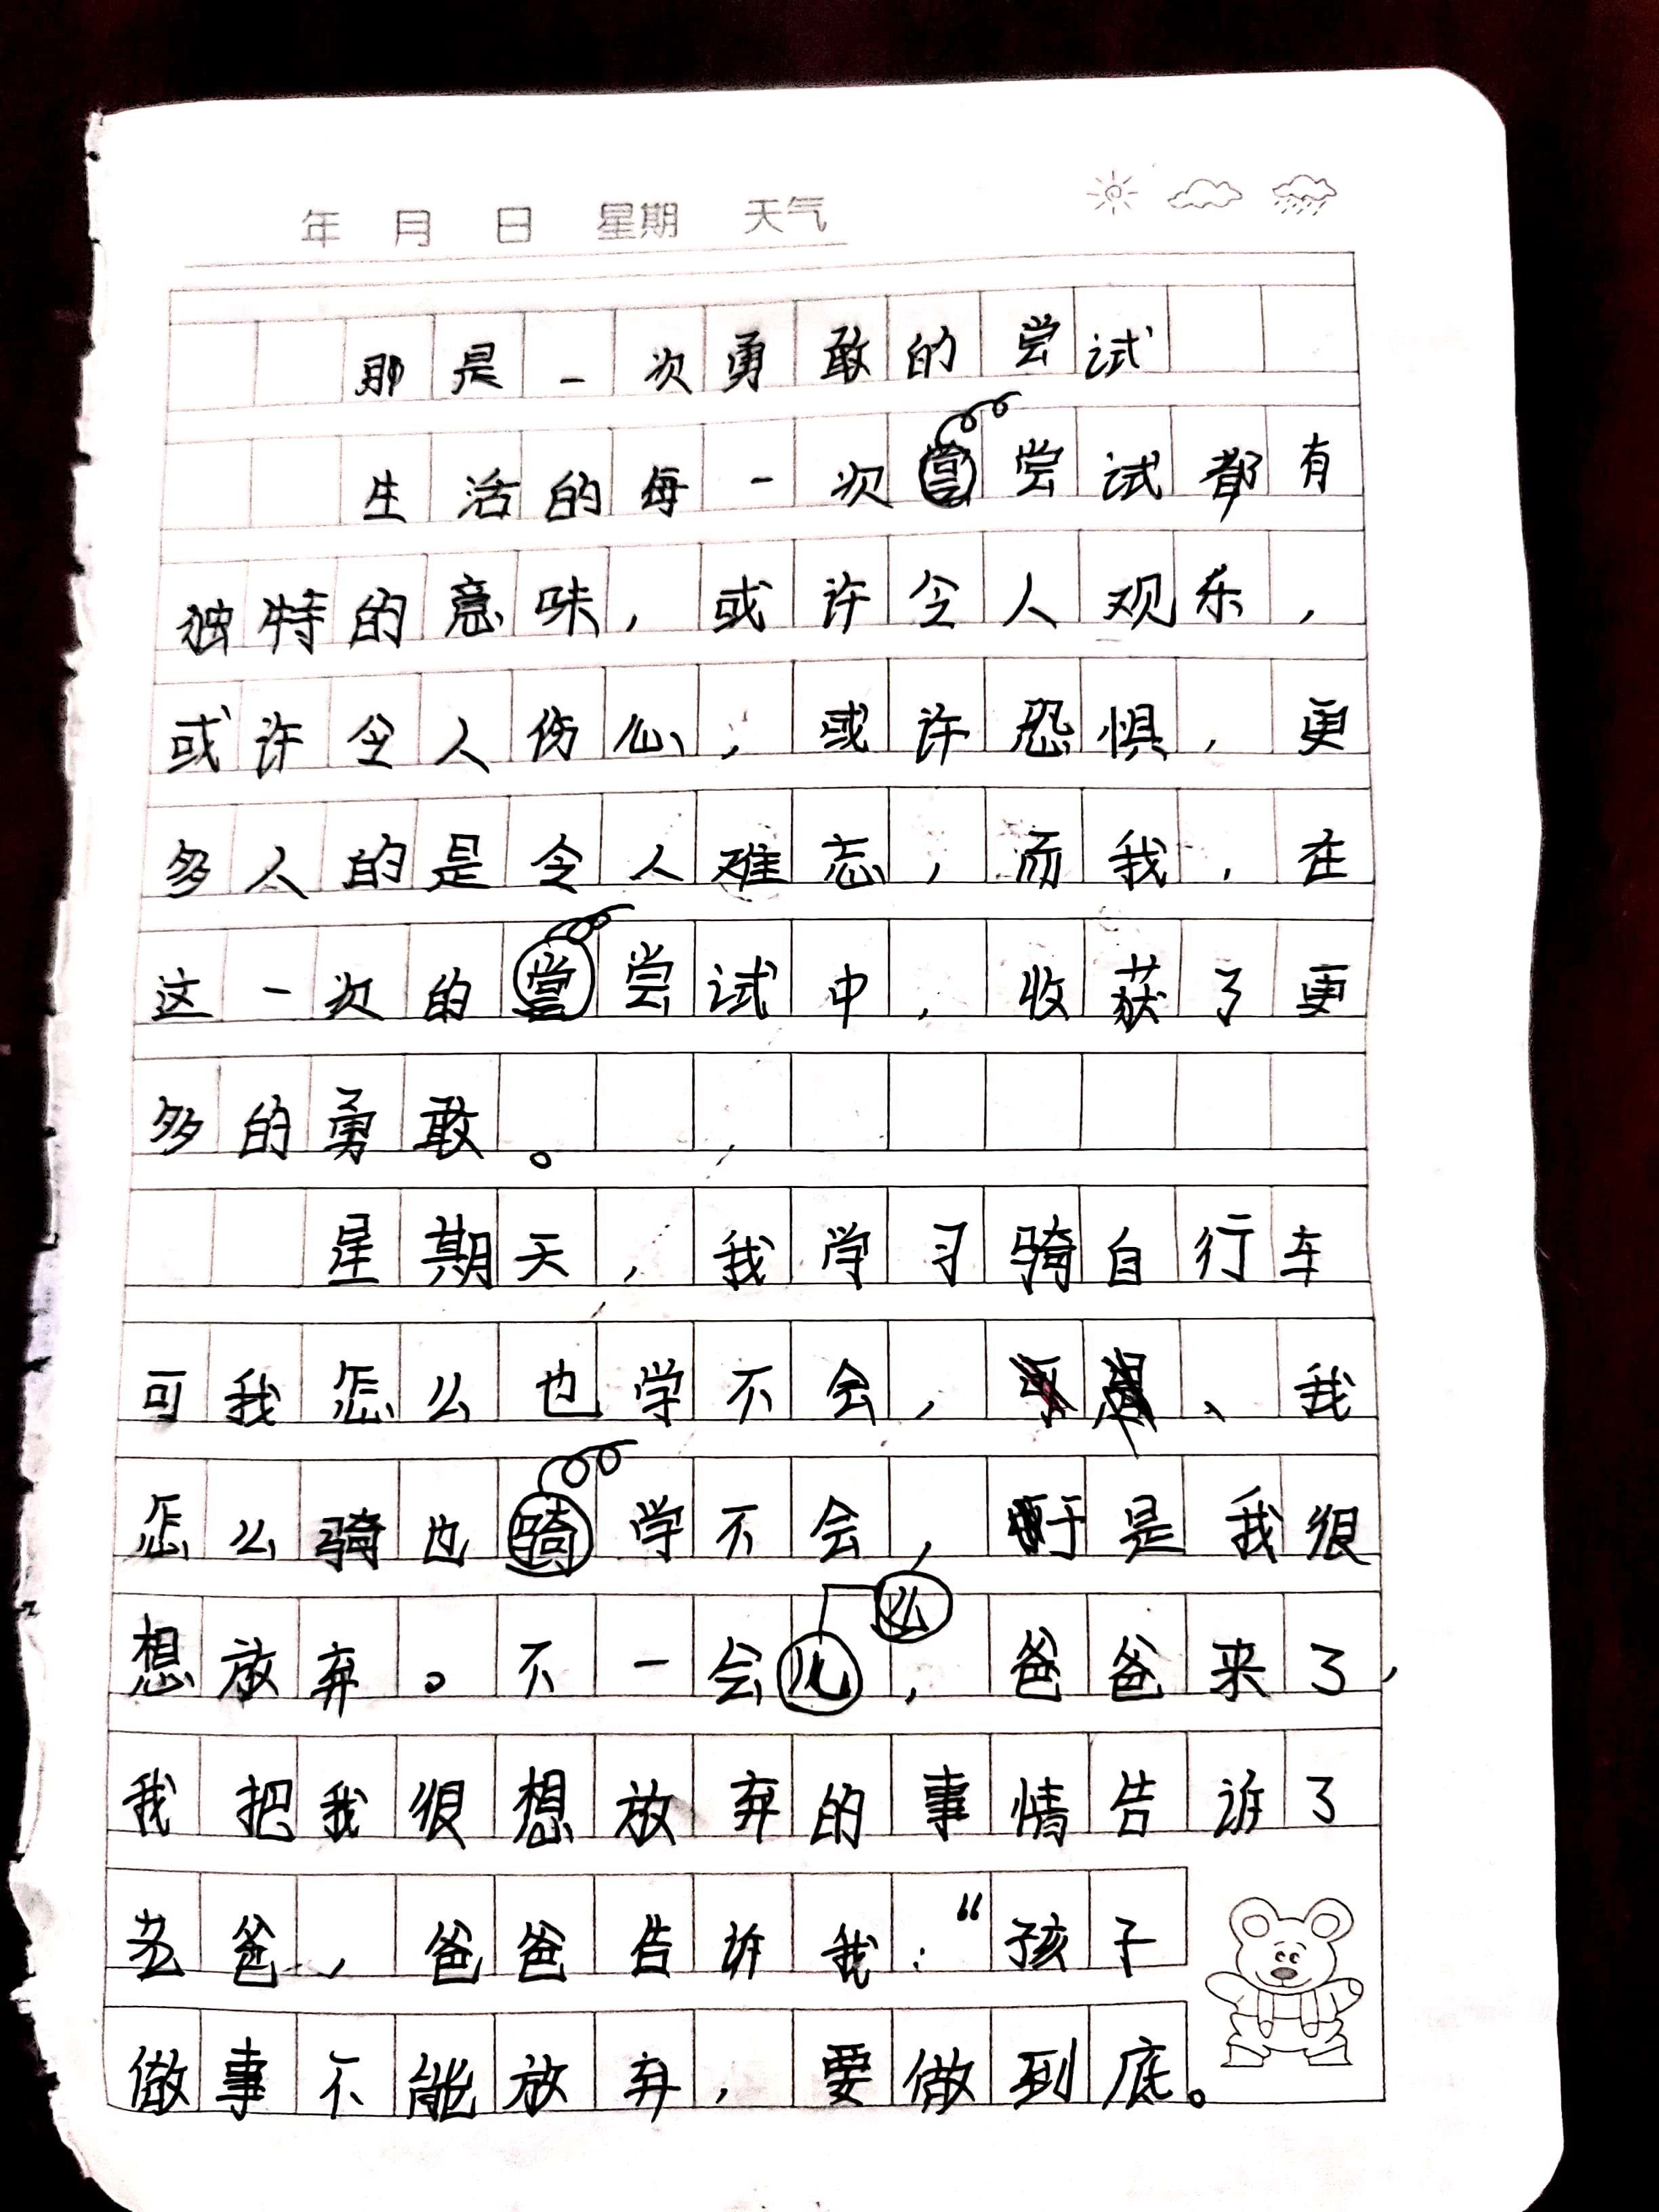 年 月 日 星期 天气
那是一次勇敢的尝试
生活的每一次尝试都有
独特的意味，或许令人观乐，
或许令人伤心，或许恐惧，更
多人的是令人难忘，而我，在
这一次的尝试中，收获了更
多的勇敢。
星期天，我学习骑自行车
可我怎么也学不会，、我
怎么骑也学不会，于是我很
想放弃。不一会儿，爸爸来了，
我把我很想放弃的事情告诉了
爸爸，爸爸告诉我：“孩子
做事不能放弃，要做到底。